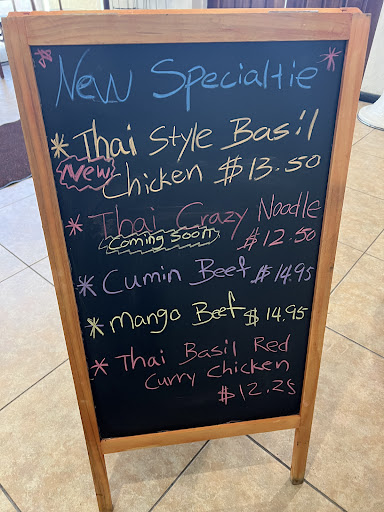 New Specialtie
* Thai Style Basil
New Chicken $13.50
* Thai Crazy Noodle
Coming Soon $12.50
* Cumin Beef $14.95
* Mango Beef $14.95
* Thai Basil Red
Curry Chicken
$12.25